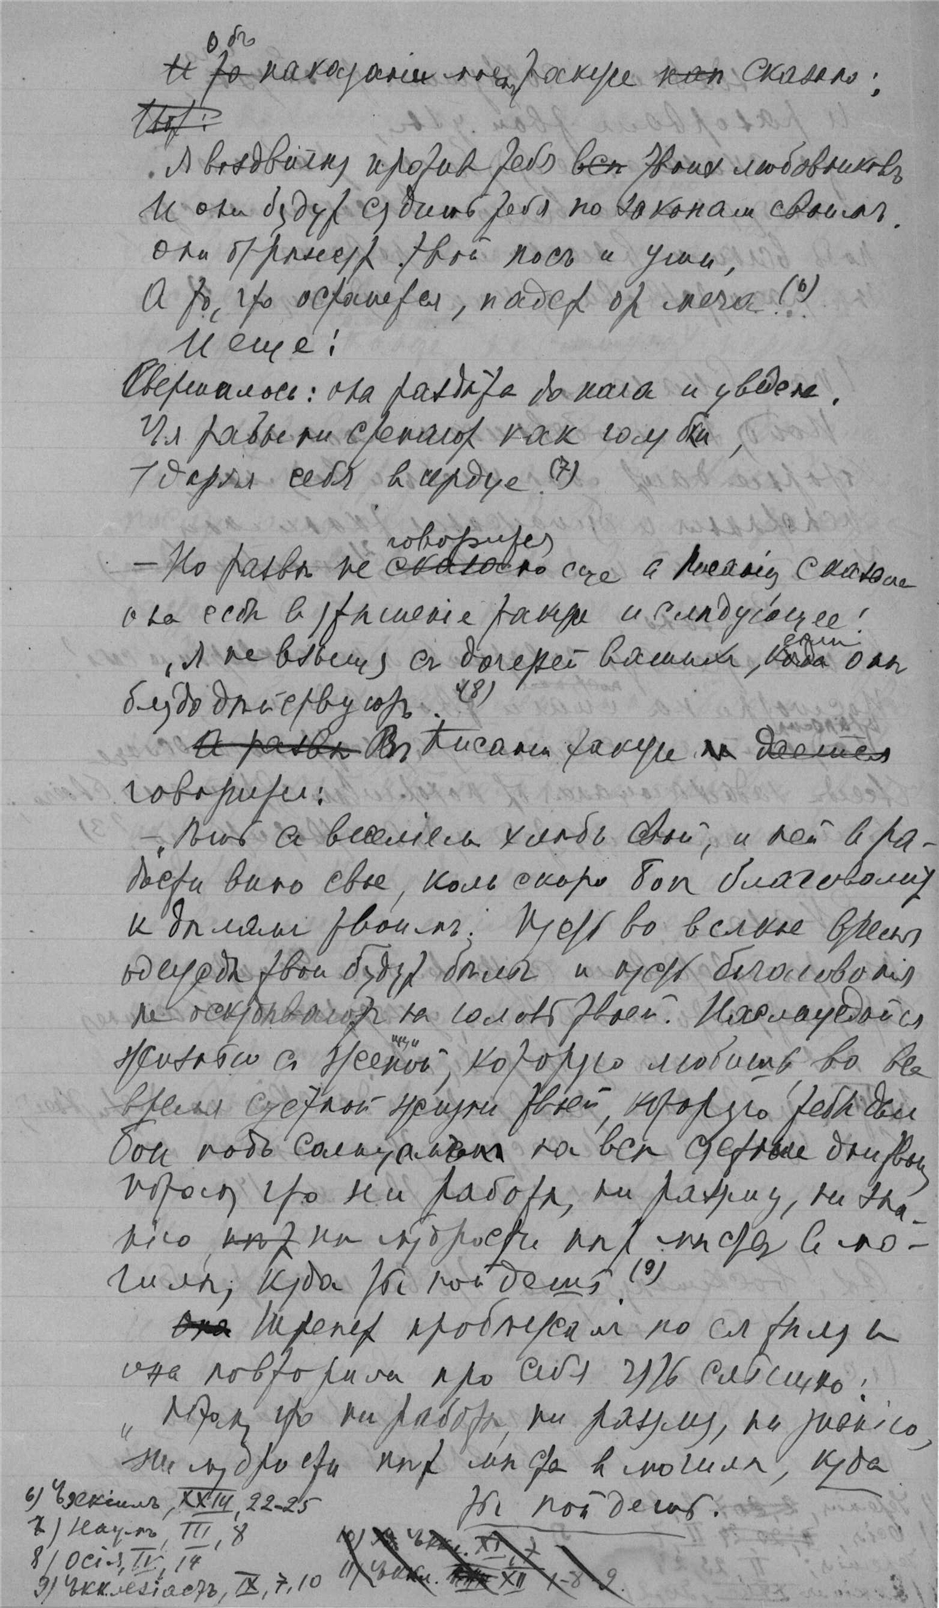 Объ
И то наказаніи этомъ также как сказано:
Я воздвигну противъ тебя всѣ твоихъ любовниковъ
И они будутъ судить тебя по законамъ своимъ.
Они отрѣжутъ твой носъ и уши,
А то, что останется, падетъ отъ меча. (6)
И еще:
Свершилось: она раздѣта до нага и уведена.
Ея рабыни стенаютъ какъ голубки,
Ударяя себя въ сердце. (7)
говорится
— Но развѣ не сказано еще в Писаніи, сказала
она себѣ в утѣшеніе также и слѣдующее:
если
„Я не взыщу съ дочерей вашихъ, когда онѣ
блудодѣйствуютъ. (8)
А развѣ Въ Писаніи также не дается
говорится:
— „Ѣшь съ веселіемъ хлѣбъ свой, и пей въ ра-
дости вино свое, коль скоро Богъ благоволитъ
къ дѣламъ твоимъ. Пусть во всякое время
одежды твои будутъ бѣлы и пусть благовонія
не оскудѣваютъ на головѣ твоей. Наслаждайся
жизнью съ женой, которую любишь во все
время суетной жизни твоей, которую тебѣ далъ
Богъ подъ солнцемъ на всѣ суетные дни твои,
потому что ни работы, ни разума, ни зна-
нія, нѣтъ ни мудрости нѣтъ мѣста въ мо-
гилѣ, куда ты пойдешь. (9)
Она Трепетъ пробѣжалъ по ея тѣлу и
она повторила про себя чуть слышно:
„потому что ни работы, ни разума, ни знанія,
„ни мудрости нѣтъ мѣста в могилѣ, куда
ты пойдешь.
6) Іезекіиль, XXIII, 22-25
7) Наумъ, III, 8
8) Осія, IV, 14
9) Экклезіастъ, IX, 7, 10
10) Экк. XI, 7
11) Эккл. XII, 1-8-9.